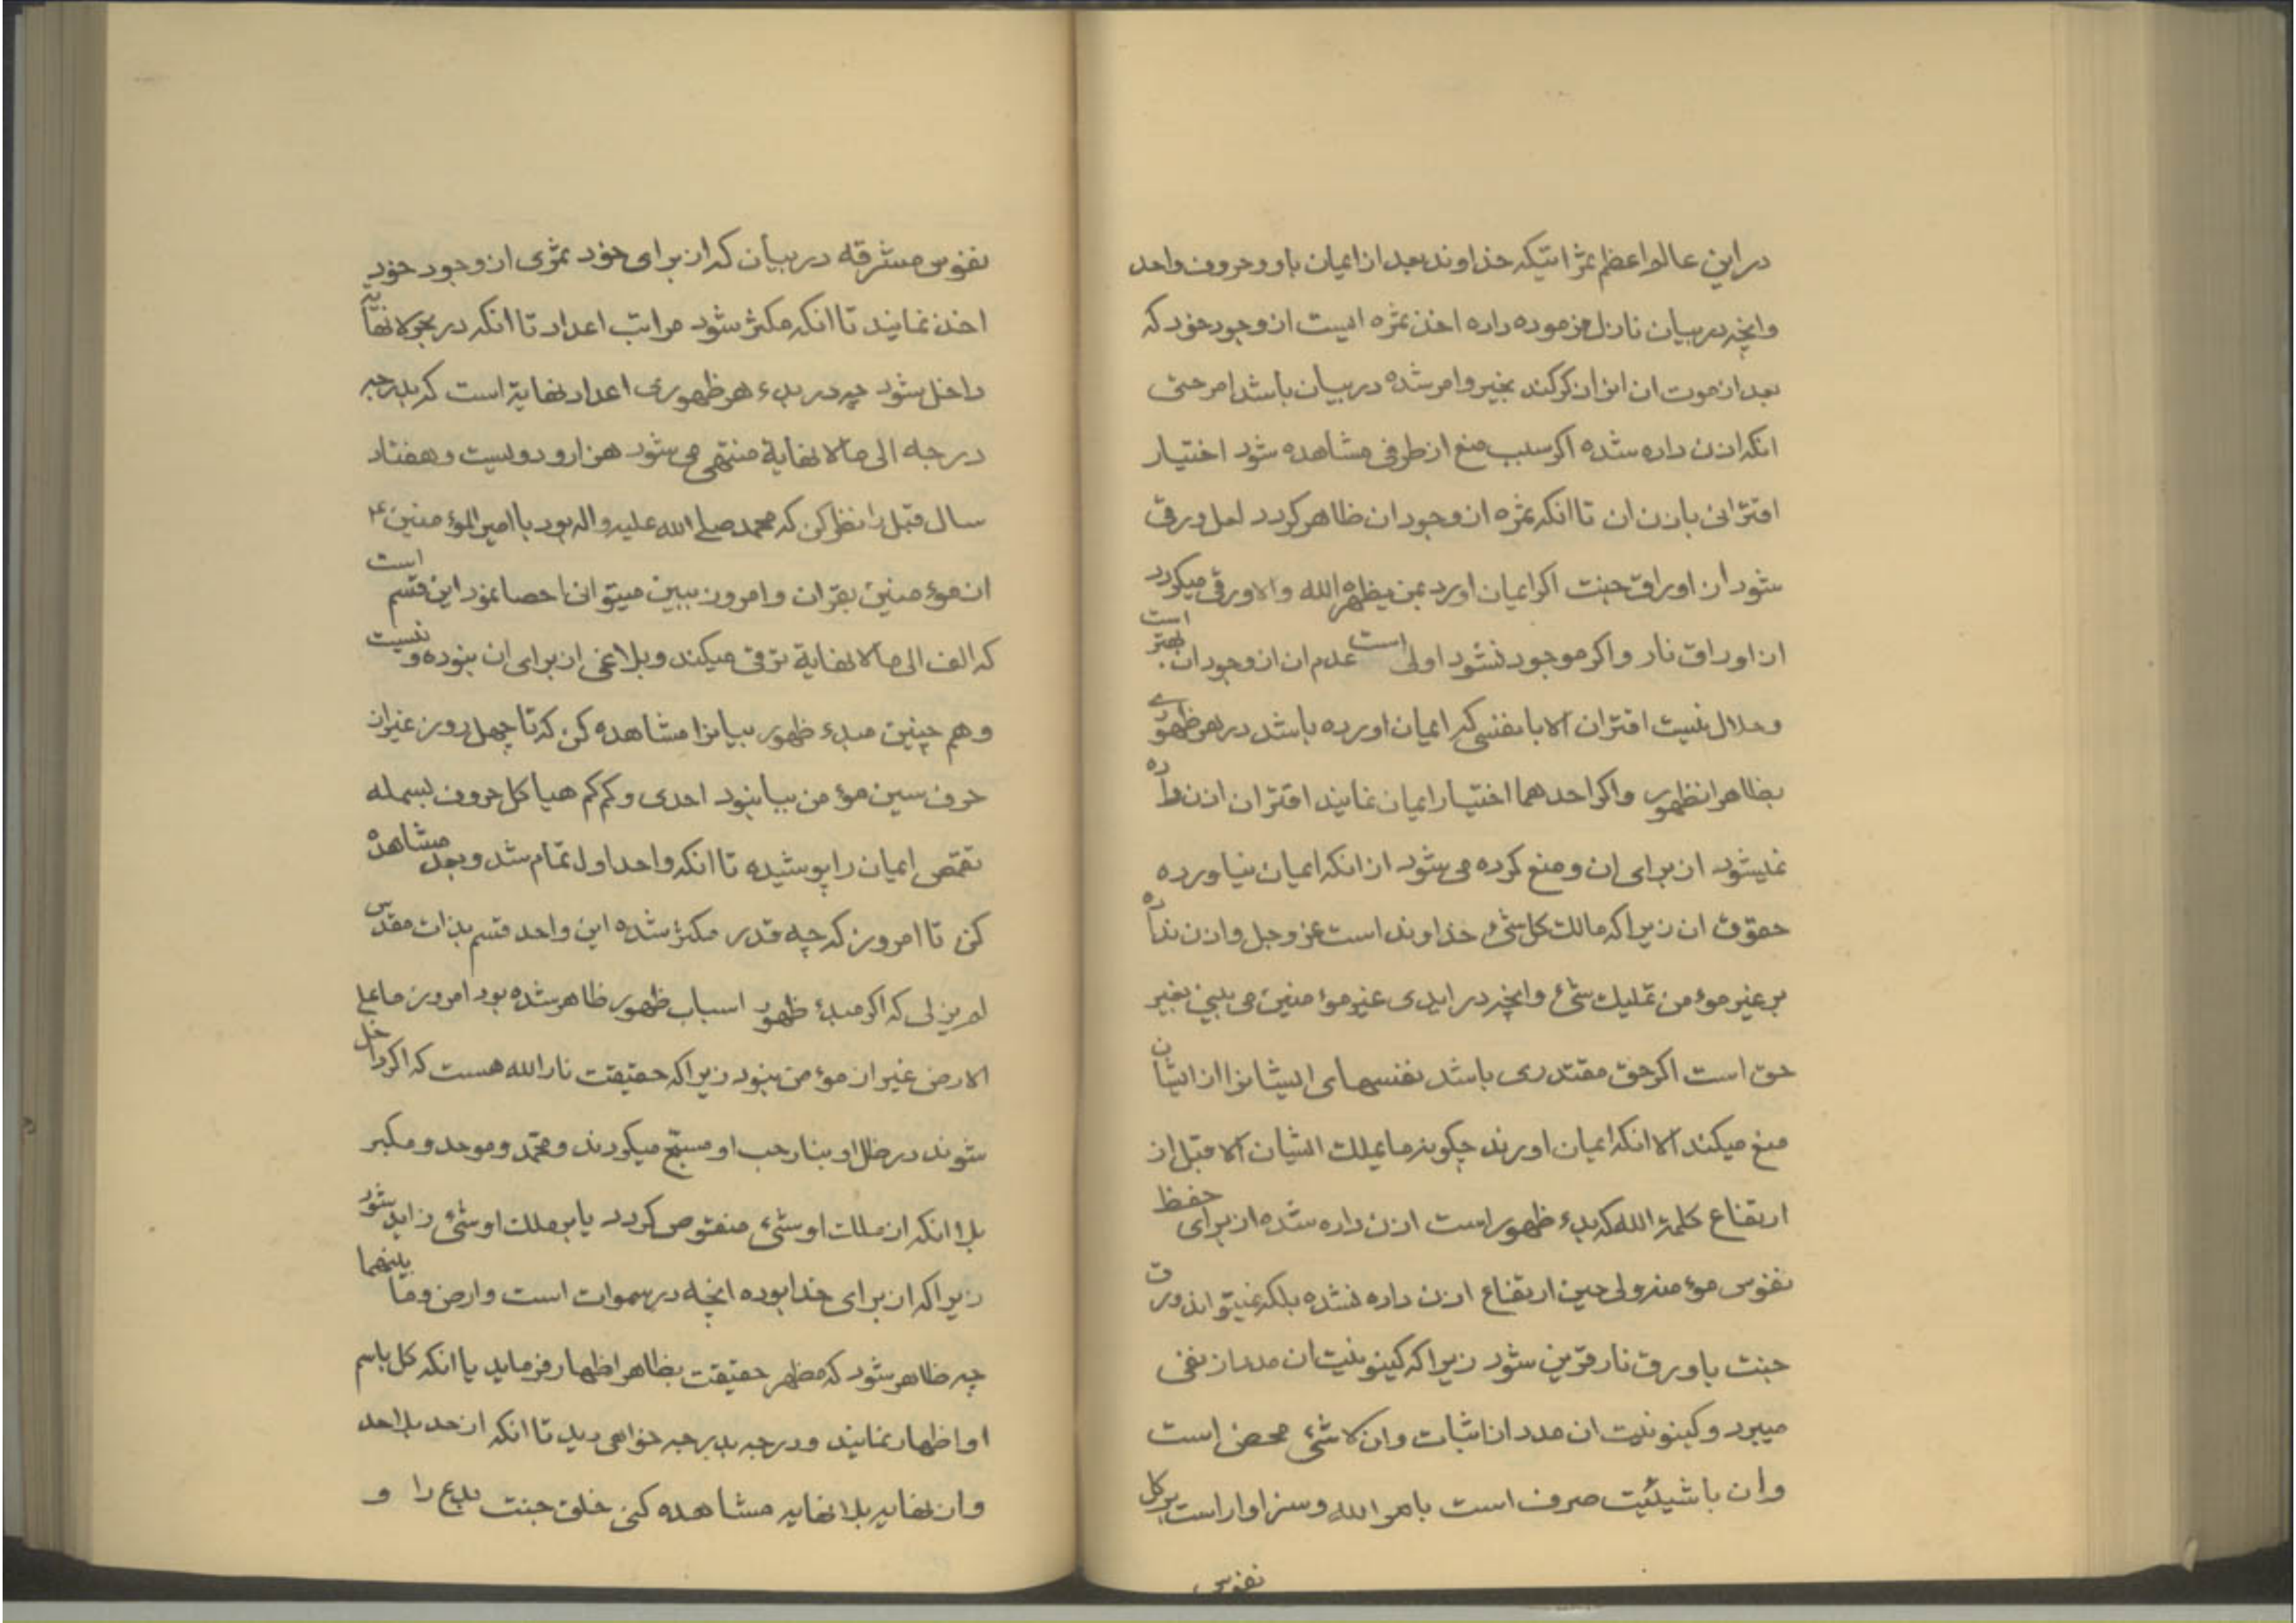 در این عالم اعظم ثمراتیکه خداوند بعد از ایمان باو و حروف واحد
وانچه در بیان نازل فرموده داده اخذ ثمره ایست از وجود خود که
بعد از موت ان از ان ذکر کند بخیر وامر شده در بیان باشد امر حتی
انکه اذن داده شده اکر سبب منع از طرفی مشاهده شود اختیار
اقترانی باذن ان تا انکه ثمره از وجود ان ظاهر کردد لعل ورقی
شود از اوراق جنت اکر ایمان اورد بمن یظهره الله والا ورقی میکردد
از اوراق نار واکر موجود نشود اولی است عدم ان از وجود ان بهتر است
وحلال نیست اقتران الا با نفسی که ایمان اورده باشد در هر ظهوری
بظاهر انظهور واکر احدهما اختیار ایمان نمایند اقتران اذن داده
نمیشود از برای ان ومنع کرده می شود از انکه ایمان نیاورده
حقوق ان زیرا که مالک کل شیء خداوند است عز وجل واذن نداده
بر غیر مؤمن تملیک شیء وانچه در ایدی غیر مؤمنین می بینی بغیر
حق است اکر حق مقتدری باشد نفسهای ایشانرا از ایشان
منع میکند الا انکه ایمان اورند چکونه ما یملک ایشان الا قبل از
ارتفاع کلمة الله که بدء ظهور است اذن داده شده از برای حفظ
نفوس مؤمنه ولی حین ارتفاع اذن داده نشده بلکه نمیتواند ورق
جنت با ورق نار قرین شود زیرا که کینونیت ان مدد از نفی
میبرد وکینونیت ان مدد از اثبات وان لا شیء محض است
وان با شیئیت صرف است بامر الله وسزاوار است بر کل
نفوس
نفوس مشرقه در بیان که از برای خود ثمری از وجود خود
اخذ نمایند تا انکه مکثر شود مراتب اعداد تا انکه در بحر لا نهایه
داخل شود چه در بدء هر ظهوری اعداد نهایة است که بدرجه
درجه الی ما لا نهایة منتهی می شود هزار و دولیست وهفتاد
سال قبل را نظر کن که محمد صلی الله علیه واله بود با امیر المؤمنین ع
از مؤمنین بقران وامروز ببین میتوانی احصا نمود این قسم است
که الف الی ما لا نهایة ترقی میکند وبلاغی از برای ان نبوده ونیست
وهم چنین مبدء ظهور بیانرا مشاهده کن که تا چهل روز غیر از
حرف سین مؤمن ببا نبود احدی وکم کم هیاکل حروف بسمله
تقمص ایمان را پوشیده تا انکه واحد اول تمام شد وبعد مشاهده
کن تا امروز که چه قدر مکثر شده این واحد قسم بذات مقدس
لم یزلی که اکر مبدء ظهور اسباب ظهور ظاهر شده بود امروز ما علی
الارض غیر از مؤمن نبود زیرا که حقیقت نار الله هست که اکر داخل
شوند در ظل او بنار حب او مسبح میکردند ومحمد وموحد ومکبر
بلا انکه از ملک او شیء منقوص کردد یا بر ملک او شیء زاید شود
زیرا که از برای خدا بوده انچه در سموات است وارض وما بینهما
چه ظاهر شود که مظهر حقیقت بظاهر اظهار فرماید یا انکه کل باسم
او اظهار نمایند ودرجه بدرجه خواهی دید تا انکه از حد بلا حد
وان نهایه بلا نهایه مشاهده کنی خلق جنت بدع را و